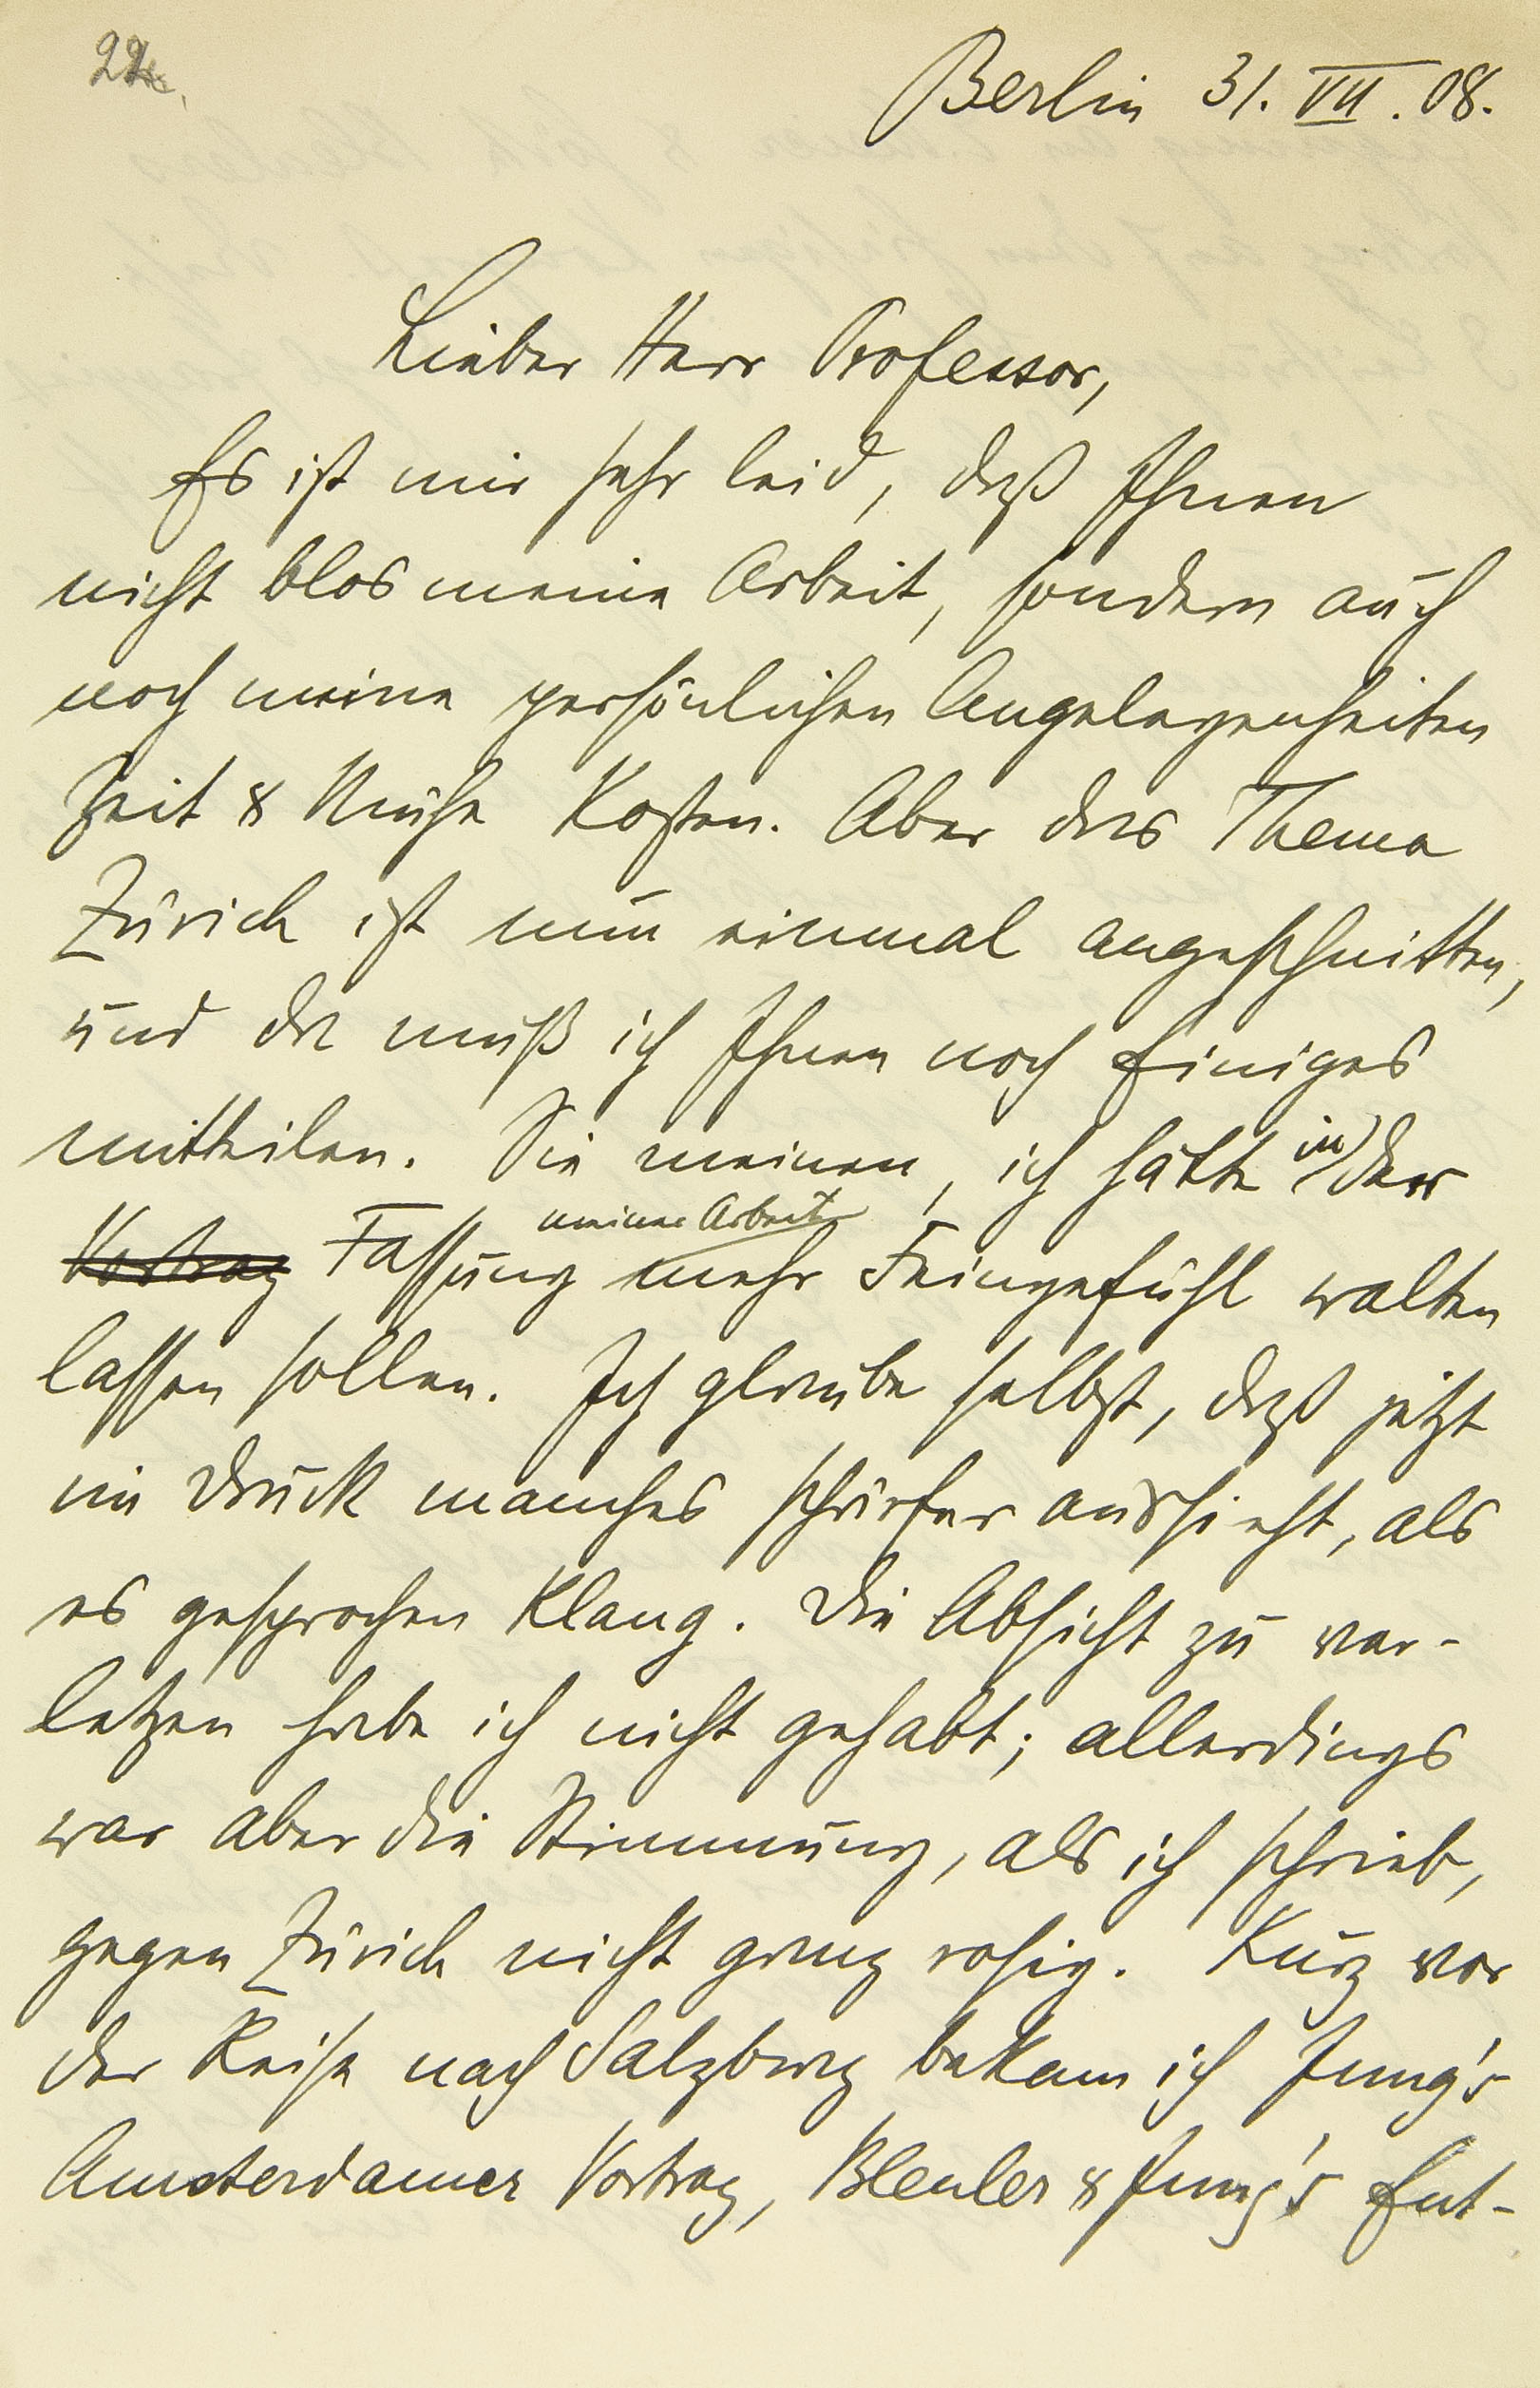 Berlin 31. VII. 08.
Lieber Herr Professor,
Es ist mir sehr leid, daß Ihnen
nicht blos meine Arbeit, sondern auch
noch meine persönlichen Angelegenheiten
Zeit & Mühe kosten. Aber das Thema
Zürich ist nun einmal angeschnitten,
und da muß ich Ihnen noch Einiges
mitteilen. Sie meinen, ich hätte in der
Vortrag Fassung meiner Arbeit mehr Feingefühl walten
lassen sollen. Ich glaube selbst, daß jetzt
im Druck manches schärfer aussieht, als
es gesprochen klang. Die Absicht zu ver-
letzen habe ich nicht gehabt; allerdings
war aber die Stimmung, als ich schrieb,
gegen Zürich nicht ganz rosig. Kurz vor
der Reise nach Salzburg bekam ich Jung's
Amsterdamer Vortrag, Bleuler & Jung's Ent-